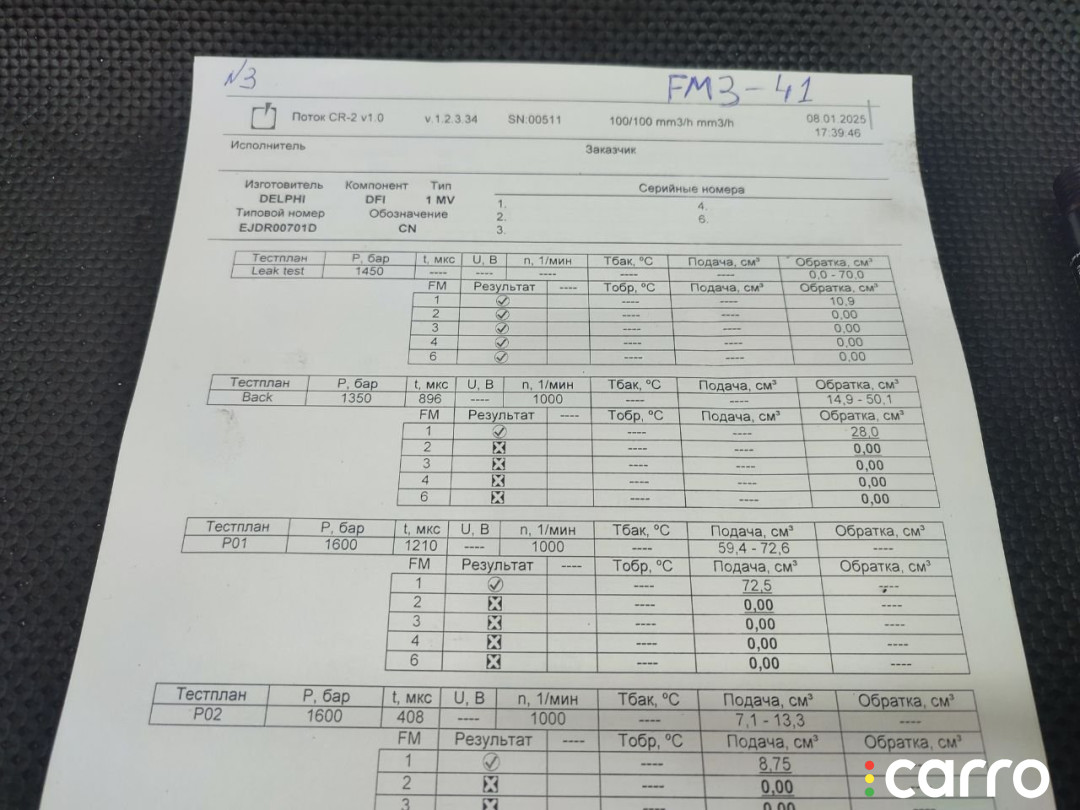 N3
FM3-41
Поток CR-2 v1.0 v.1.2.3.34 SN:00511 100/100 mm3/h mm3/h 08.01.2025
17:39:46
Исполнитель Заказчик
Изготовитель Компонент Тип Серийные номера
DELPHI DFI 1 MV 1. 4.
Типовой номер Обозначение 2. 6.
EJDR00701D CN 3.
Тестплан P, бар t, мкс U, В n, 1/мин Тбак, ºC Подача, см³ Обратка, см³
Leak test 1450 ---- ---- ---- ---- ---- 0,0 - 70,0
FM Результат ---- Тобр, ºC Подача, см³ Обратка, см³
1 ---- ---- 10,9
2 ---- ---- 0,00
3 ---- ---- 0,00
4 ---- ---- 0,00
6 ---- ---- 0,00
Тестплан P, бар t, мкс U, В n, 1/мин Тбак, ºC Подача, см³ Обратка, см³
Back 1350 896 ---- 1000 ---- ---- 14,9 - 50,1
FM Результат ---- Тобр, ºC Подача, см³ Обратка, см³
1 ---- ---- 28,0
2 ---- ---- 0,00
3 ---- ---- 0,00
4 ---- ---- 0,00
6 ---- ---- 0,00
Тестплан P, бар t, мкс U, В n, 1/мин Тбак, ºC Подача, см³ Обратка, см³
P01 1600 1210 ---- 1000 ---- 59,4 - 72,6 ----
FM Результат ---- Тобр, ºC Подача, см³ Обратка, см³
1 ---- 72,5 ----
2 ---- 0,00 ----
3 ---- 0,00 ----
4 ---- 0,00 ----
6 ---- 0,00 ----
Тестплан P, бар t, мкс U, В n, 1/мин Тбак, ºC Подача, см³ Обратка, см³
P02 1600 408 ---- 1000 ---- 7,1 - 13,3 ----
FM Результат ---- Тобр, ºC Подача, см³ Обратка, см³
1 ---- 8,75
2 ---- 0,00
3 ---- 0,00
carro